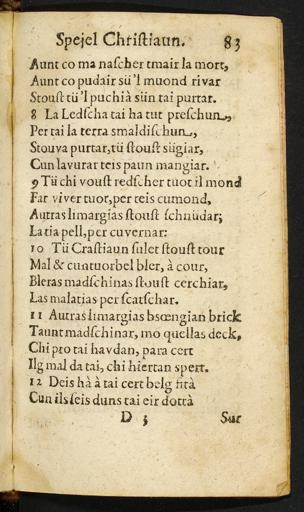 Spejel Chriſtiaun. 83
Aunt co ma naſcher tmair la mort,
Aunt co pudair sü'l muond rivar
Stouſt tü'l puchià sün tai purtar.
8 La Ledſcha tai ha tut preſchun,
Per tai la terra smaldiſchun,
Stouva purtar, tü ſtouſt sügiar,
Cun lavurar teis paun mangiar.
9 Tü chi vouſt redſcher tuot il mond
Far viver tuot, per teis cumond,
Autras limargias ſtouſt ſchnüdar;
La tia pell, per cuvernar:
10 Tü Craſtiaun ſulet ſtouſt tour
Mal & cuntuorbel bler, à cour,
Bleras madſchinas ſtouſt cerchiar,
Las malatias per ſcatſchar.
11 Autras limargias bsœngian brick
Taunt madſchinar, mo quellas deck,
Chi pro tai havdan, para cert
Ilg mal da tai, chi hiertan spert.
12 Deis hà à tai cert belg fità
Cun ils ſeis duns tai eir dottà
D 3 Sur